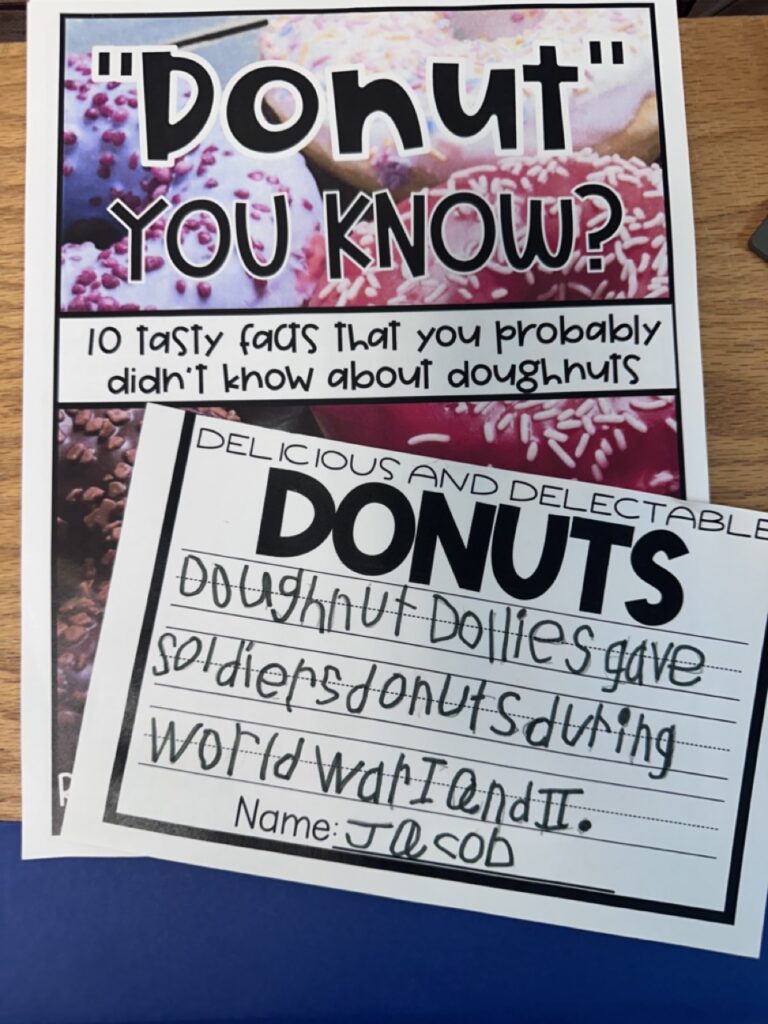 "Donut"
YOU KNOW?
10 tasty facts that you probably
didn't know about doughnuts
DELICIOUS AND DELECTABLE
DONUTS
Doughnut Dollies gave
soldiers donuts during
World War I and II.
Name: Jacob